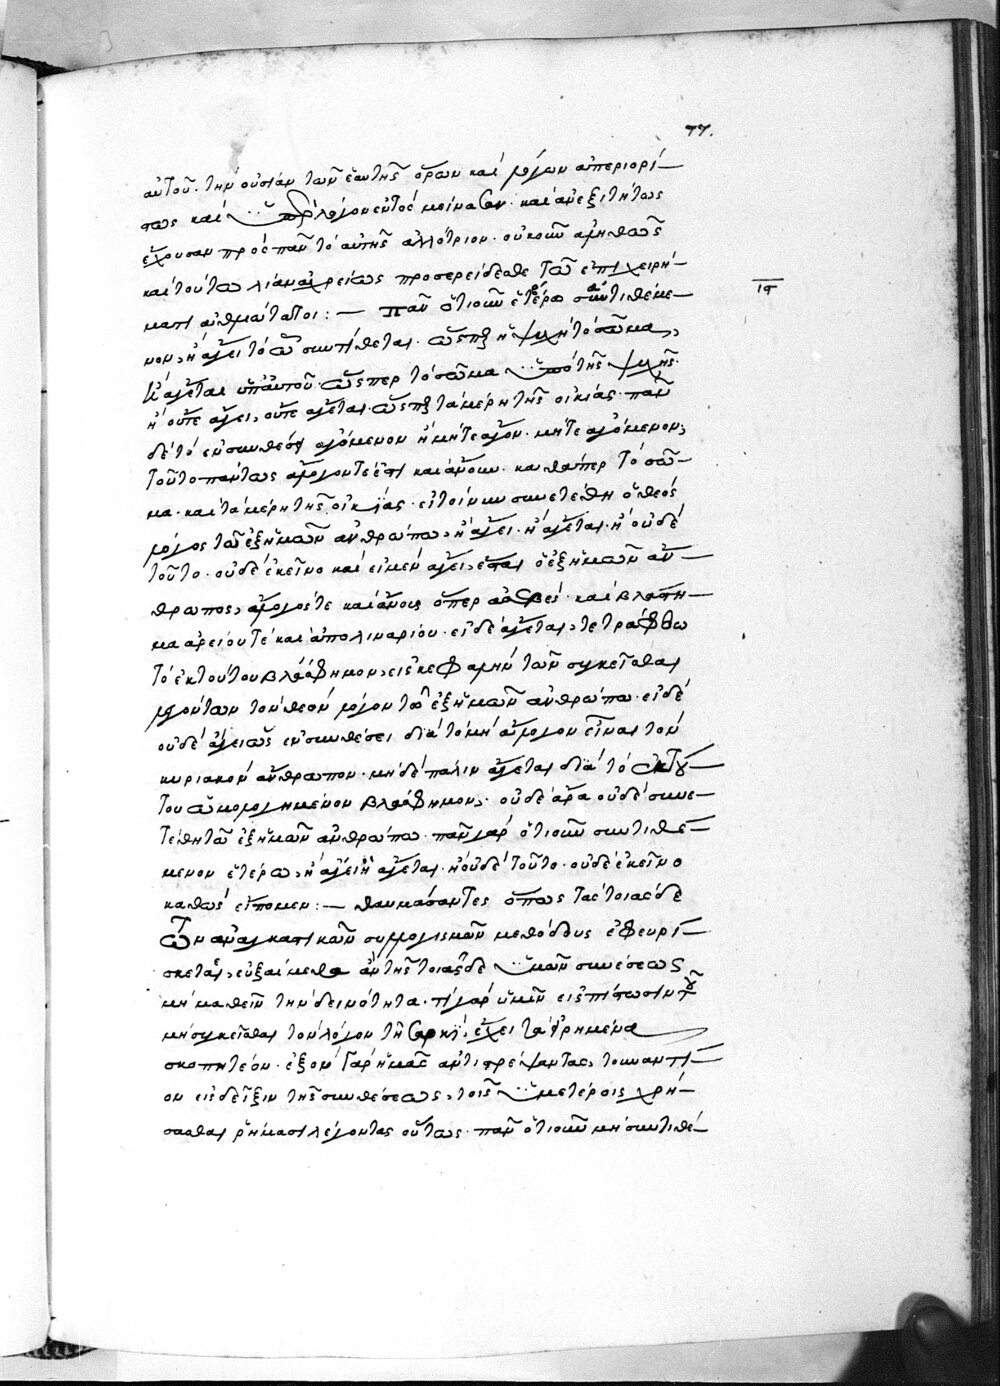 77.
αὐτοῦ. τὴν οὐσίαν τῶν ἑαυτῆς ὅρων καὶ λόγων ἀπεριορί-
τως καὶ λόγον ἐντὸς μείνασαν. καὶ ἀνεξιτήτως
ἔχουσαν πρὸς πᾶν τὸ αὐτῆς ἀλλότριον. οὐκοῦν ἀμαθῶς
καὶ τούτω λίαν ἀχρείως προσερείδεσθε τῶ ἐπιχειρή-
ματι αὐθμαίτατοι :— Πᾶν ὁτιοῦν ἑτέρω συντιθέμε-
ιϛ
νον, ἢ ἄγει τὸ ὧ συντίθεται. ὥσπερ ἡ ψυχὴ τὸ σῶμα,
ἢ ἄγεται ὑπ' αὐτοῦ. ὥσπερ τὸ σῶμα ὑπὸ τῆς ψυχῆς.
ἢ οὔτε ἄγει, οὔτε ἄγεται. ὥσπερ τὰ μέρη τῆς οἰκίας. πᾶν
δὲ τὸ ἐν συνθέσει ἀγόμενον ἢ μήτε ἄγον. μήτε ἀγόμενον,
τοῦτο πάντως ἄλογόν τέ ἐστι καὶ ἄνουν. καθάπερ τὸ σῶ-
μα. καὶ τὰ μέρη τῆς οἰκίας. εἰ τοίνυν συνετέθη ὁ θεὸς
λόγος τῶ ἐξ ἡμῶν ἀνθρώπω, ἢ ἄγει. ἢ ἄγεται. ἢ οὐδὲ
τοῦτο. οὐδὲ ἐκεῖνο καὶ εἰ μὲν ἄγει, ἔσται ὁ ἐξ ἡμῶν ἄν-
θρωπος, ἄλογός τε καὶ ἄνους ὅπερ ἀσεβὲς. καὶ βλάσφη-
μα ἀρείου τὲ καὶ ἀπολιναρίου. εἰ δὲ ἄγεται, τετράφθω
τὸ ἐκ τούτου βλάσφημον, εἰς κεφαλὴν τῶν συγκεῖσθαι
λεγόντων τὸν θεὸν λόγον τῶ ἐξ ἡμῶν ἀνθρώπω. εἰ δὲ
οὐδὲ ἄγει ὡς ἐν συνθέσει διὰ τὸ μὴ ἄλογον εἶναι τὸν
κυριακὸν ἄνθρωπον. μηδὲ πάλιν ἄγεται διὰ τὸ ἐκ τού-
του ὡμολογημένον βλάσφημον. οὐδὲ ἄρα οὐδὲ συνε-
τέθη τῶ ἐξ ἡμῶν ἀνθρώπω. πᾶν γὰρ ὁτιοῦν συντιθέ-
μενον ἑτέρω, ἢ ἄγει ἢ ἄγεται. ἢ οὐδὲ τοῦτο. οὐδὲ ἐκεῖνο
καθὼς εἴπομεν :— θαυμάσαντες ὅπως τὰς τοιάσδε
τῶν ἀναγκαστικῶν συλλογισμῶν μεθόδους ἐφευρί-
σκεται, εὐξαίμεθα ἂν τῆς τοιᾶσδε ὑμῶν συνέσεως
μὴ μαθεῖν τὴν δεινότητα. τί γὰρ ὑμῖν εἰς πίστωσιν τοῦ
μὴ συγκεῖσθαι τὸν λόγον τῆ σαρκὶ, ἔχει τὰ εἰρημένα
σκοπητέον. ἐξὸν γὰρ ἡμᾶς ἀντιστρέψαντας, τοὐναντί-
ον εἰς δεῖξιν τῆς συνθέσεως, τοῖς ὑμετέροις χρή-
σασθαι ῥήμασι λέγοντας οὕτως. πᾶν ὁτιοῦν μὴ συντιθέ-